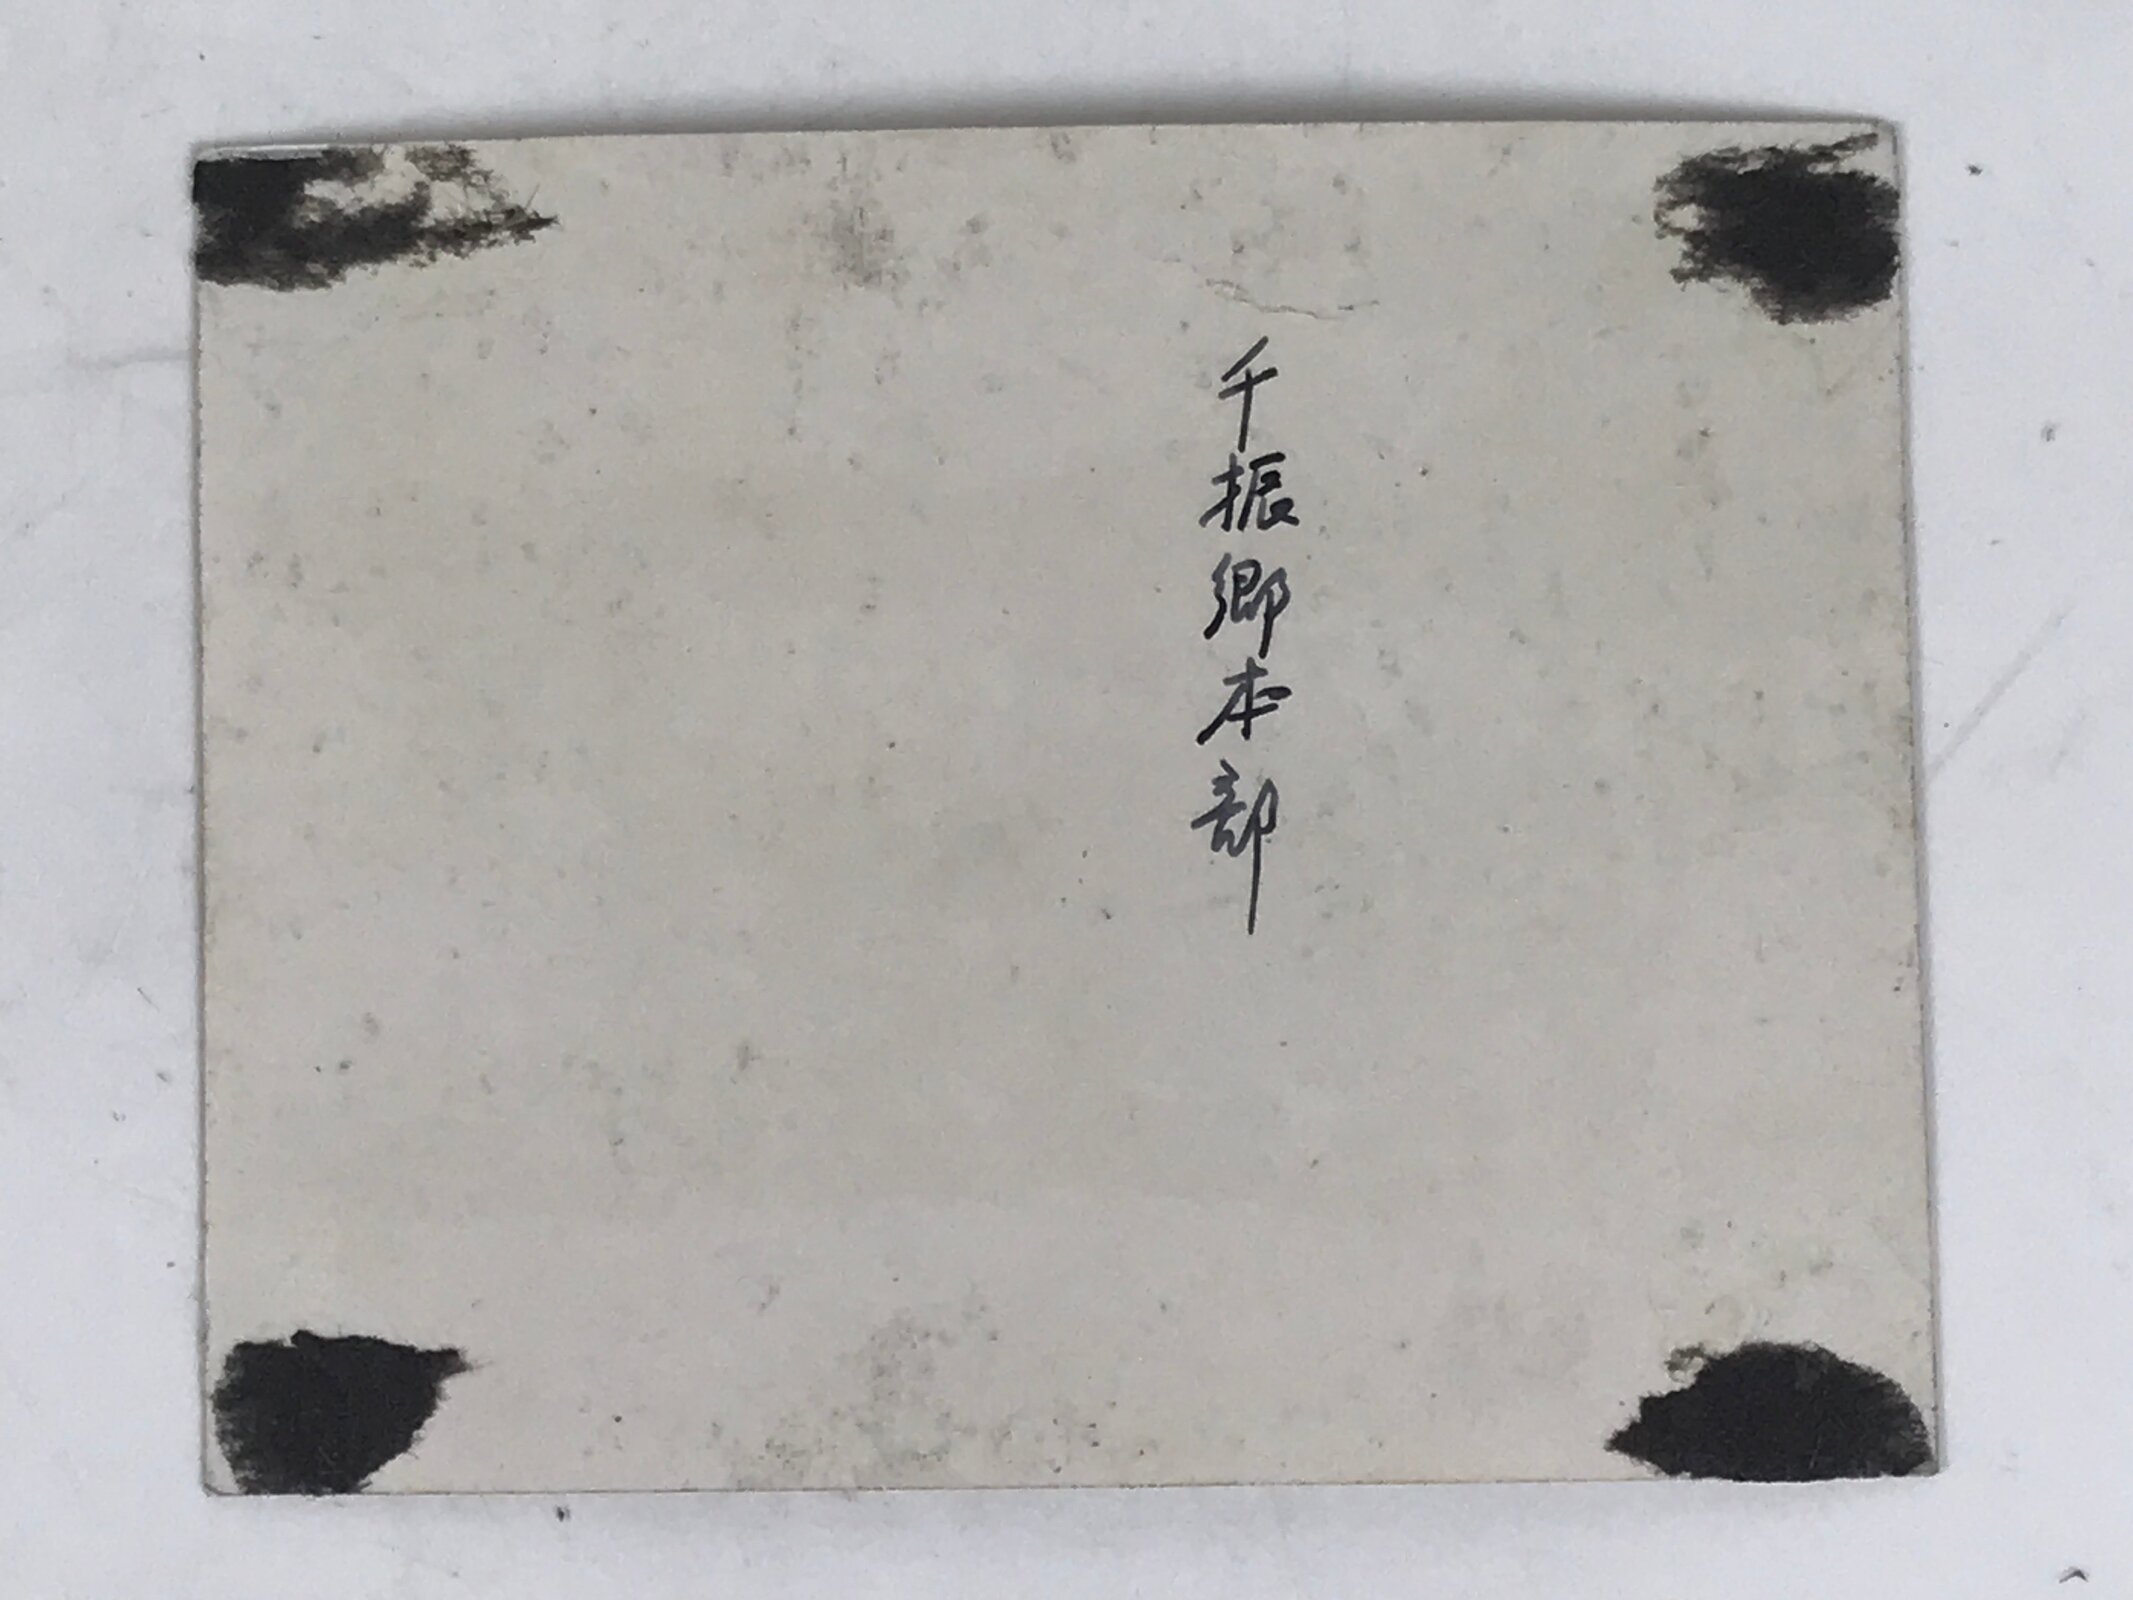 千振郷本部